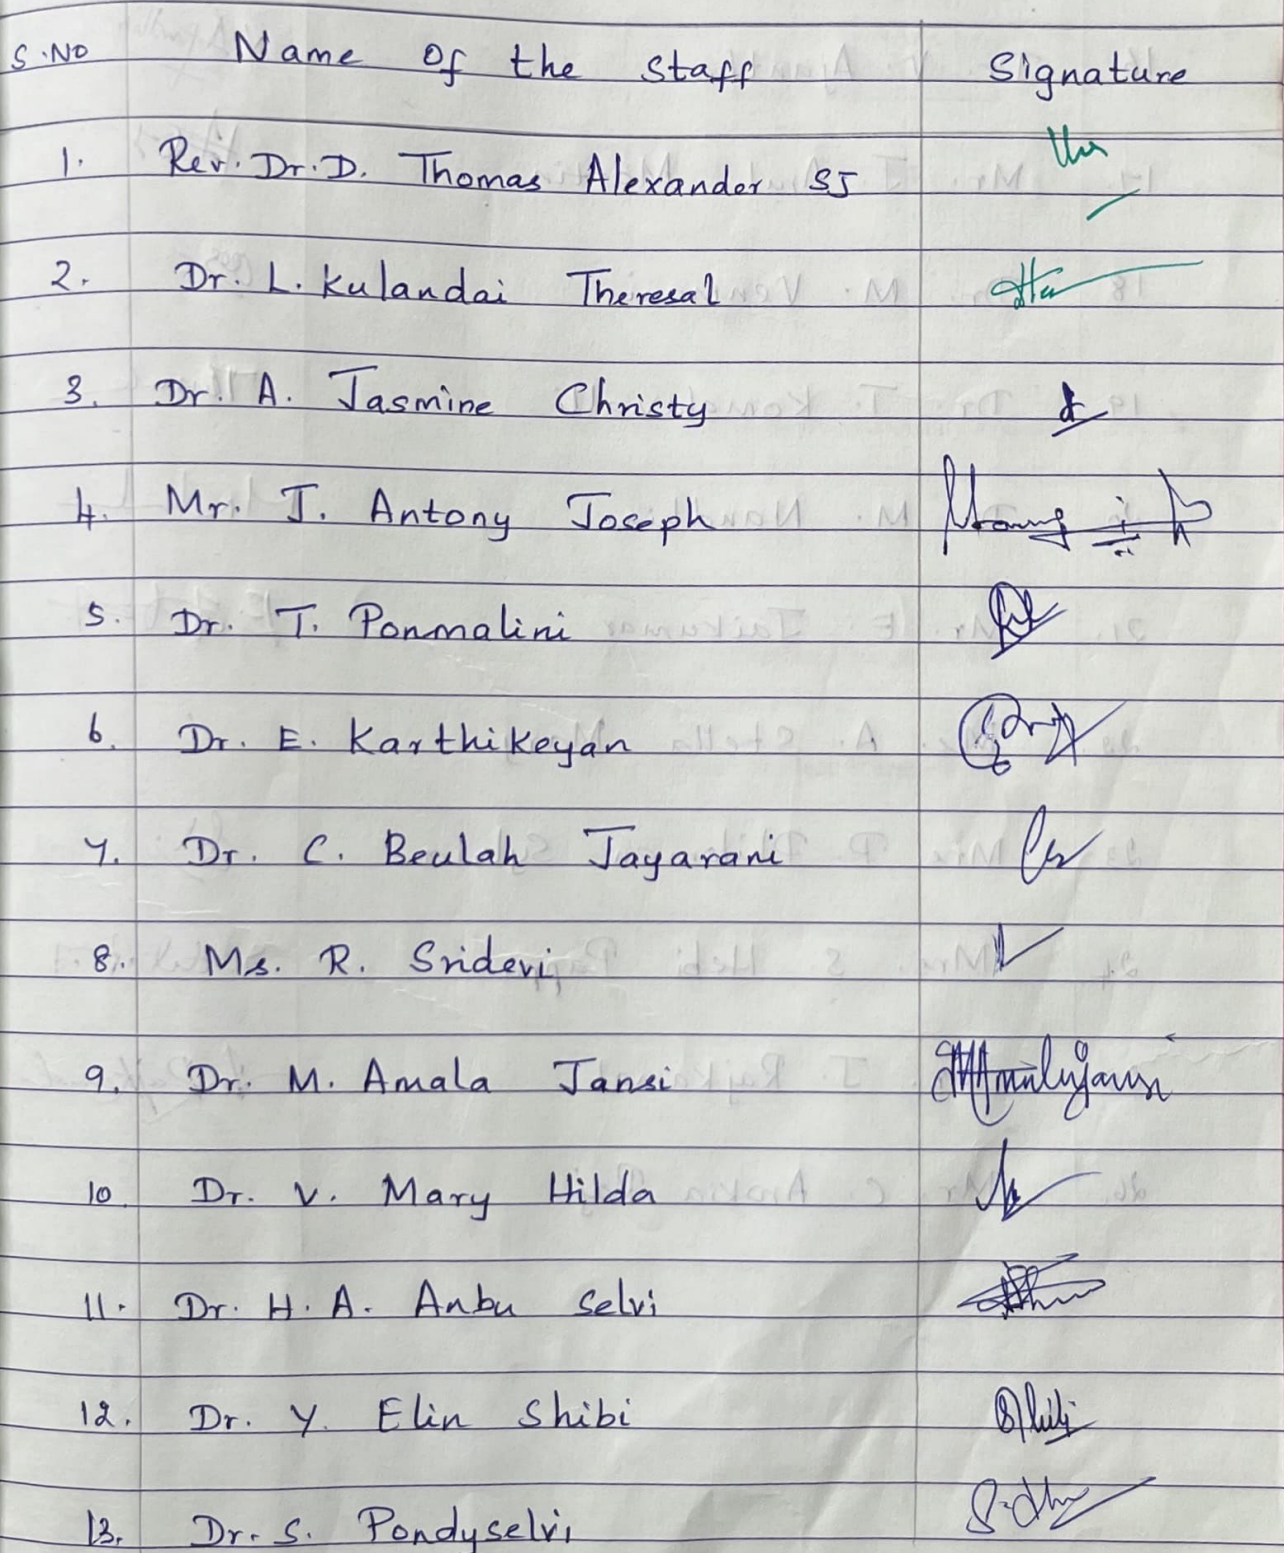 S.No Name Of the Staff Signature
1. Rev. Dr. D. Thomas Alexander SJ
2. Dr. L. Kulandai Theresal
3. Dr. A. Jasmine Christy
4. Mr. J. Antony Joseph
5. Dr. T. Ponmalini
6. Dr. E. Karthikeyan
7. Dr. C. Beulah Jayarani
8. Ms. R. Sridevi
9. Dr. M. Amala Jansi
10. Dr. V. Mary Hilda
11. Dr. H. A. Anbu Selvi
12. Dr. Y. Elin Shibi
13. Dr. S. Pondyselvi